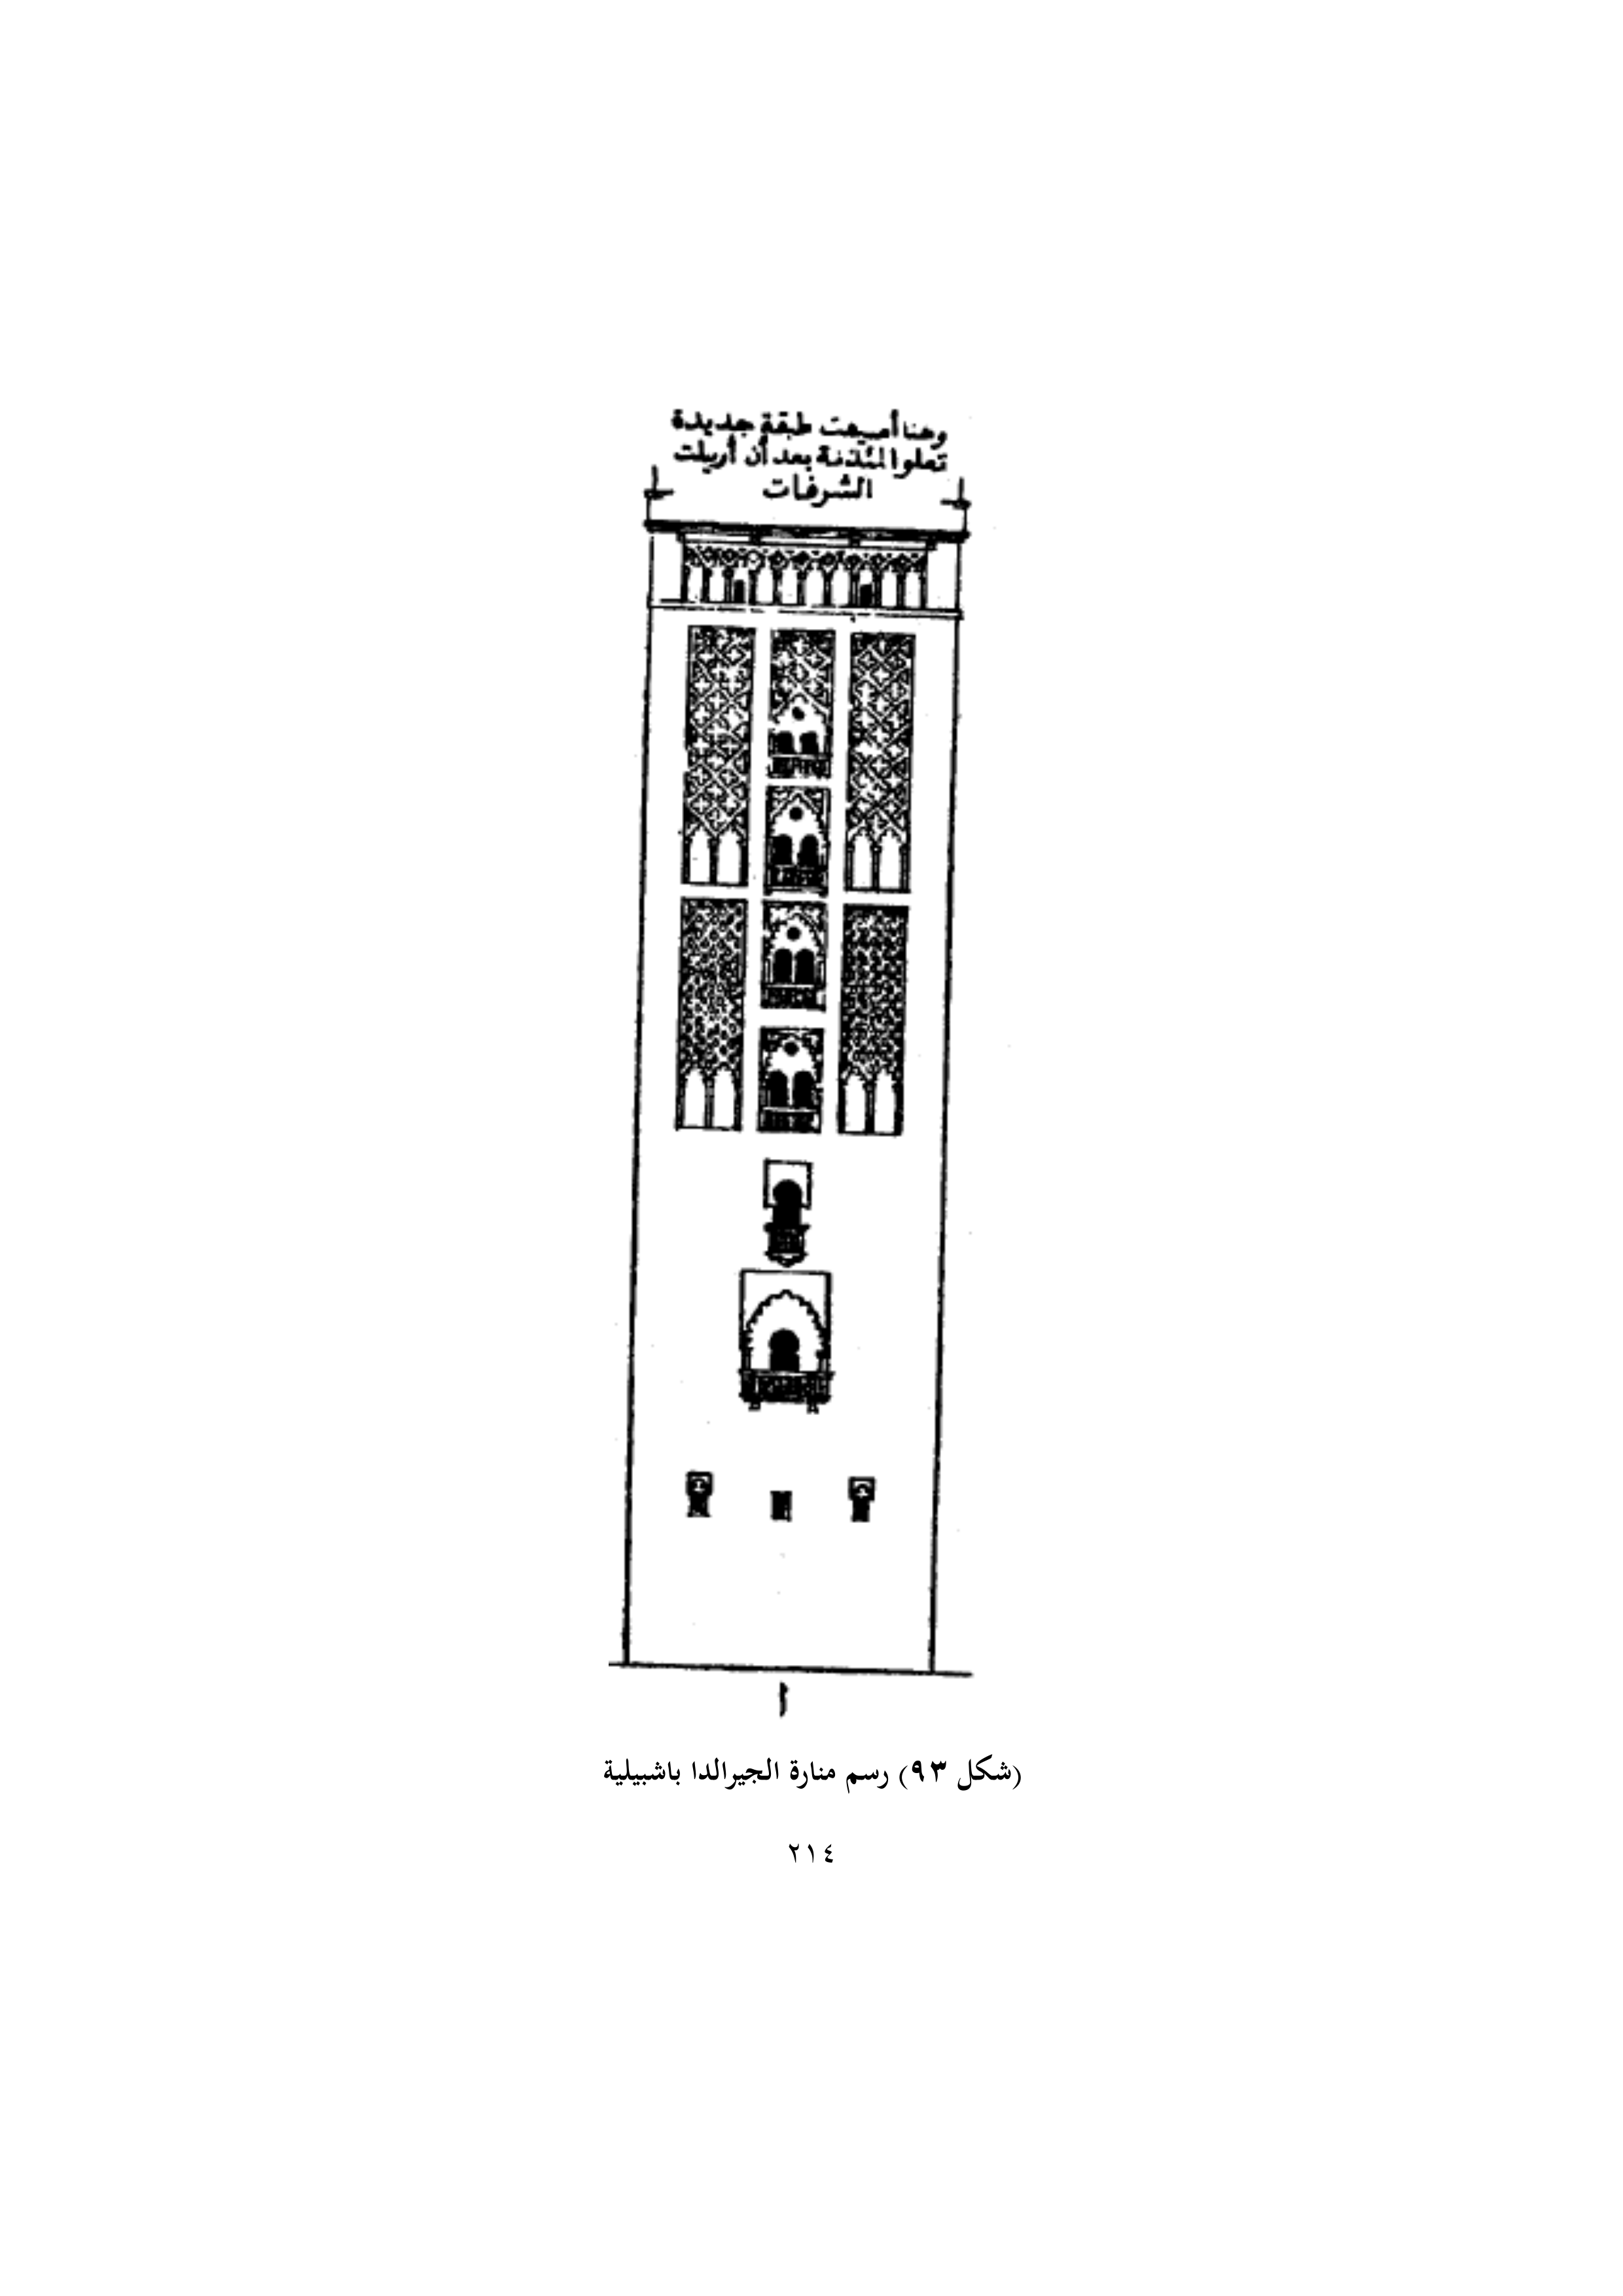 وهنا أضيفت طبقة جديدة
تعلو المئذنة بعد أن أزيلت
الشرفات
ا
(شكل ٩٣) رسم منارة الجيرالدا باشبيلية
٢١٤